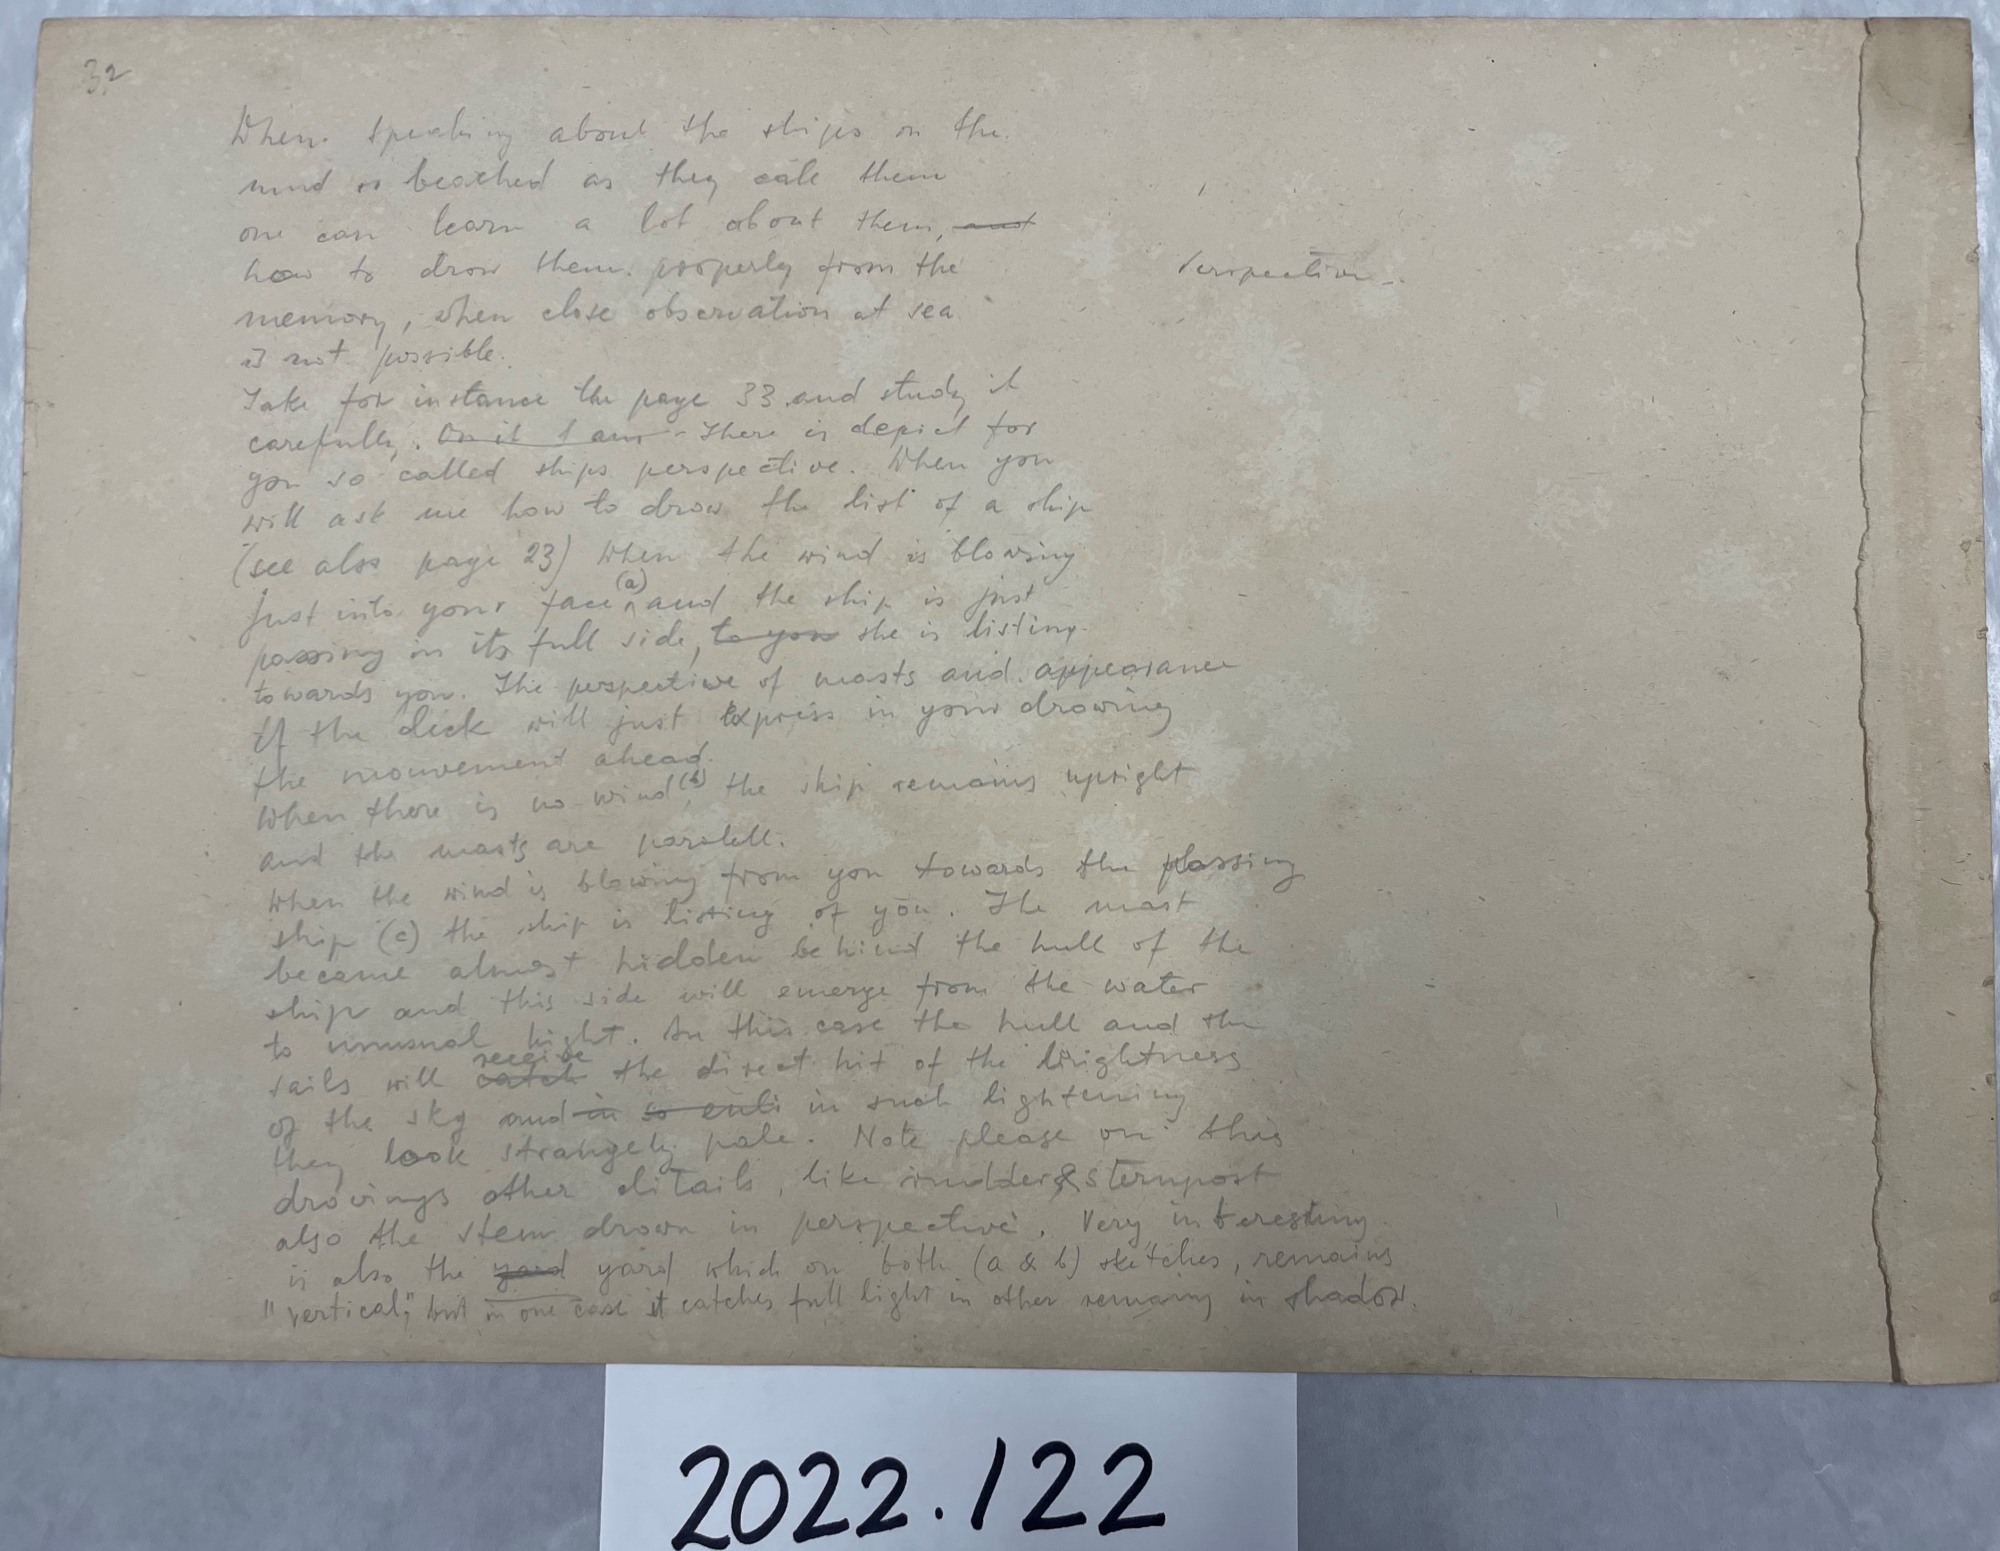 32
When speaking about the ships on the
mud or beached as they cale them
one can learn a lot about them, and
how to drow them. properly from the
Perspective..
memory, when close observation at sea
is not possible.
Take for instance the page 33 and study it
carefully. On it I am - There is depict for
you so called ships perspective. When you
will ask me how to drow the list of a ship
(see also page 23) When the wind is blowing
just into your face (a) and the ship is just
passing in its full side, to you she is listing
towards you. The perspective of masts and appearance
of the deck will just express in your drowing
the mouvement ahead.
When there is no wind (b), the ship remains upright
and the masts are paralell.
When the wind is blowing from you towards the passing
ship (c) the ship is listing of you. The mast
became almost hidden behind the hull of the
ship and this side will emerge from the water
to unusual hight. In this case the hull and the
receive
sails will catch the direct hit of the brightness
of the sky and in so in such lightening
they look strangely pale. Note please on this
drowings other ditails, like rudder & sternpost
also the stem drown in perspective. Very interesting
is also the yard yard which on both (a & b) sketches, remains
"vertical", but in one case it catches full light in other remaing in shadow.
2022.122